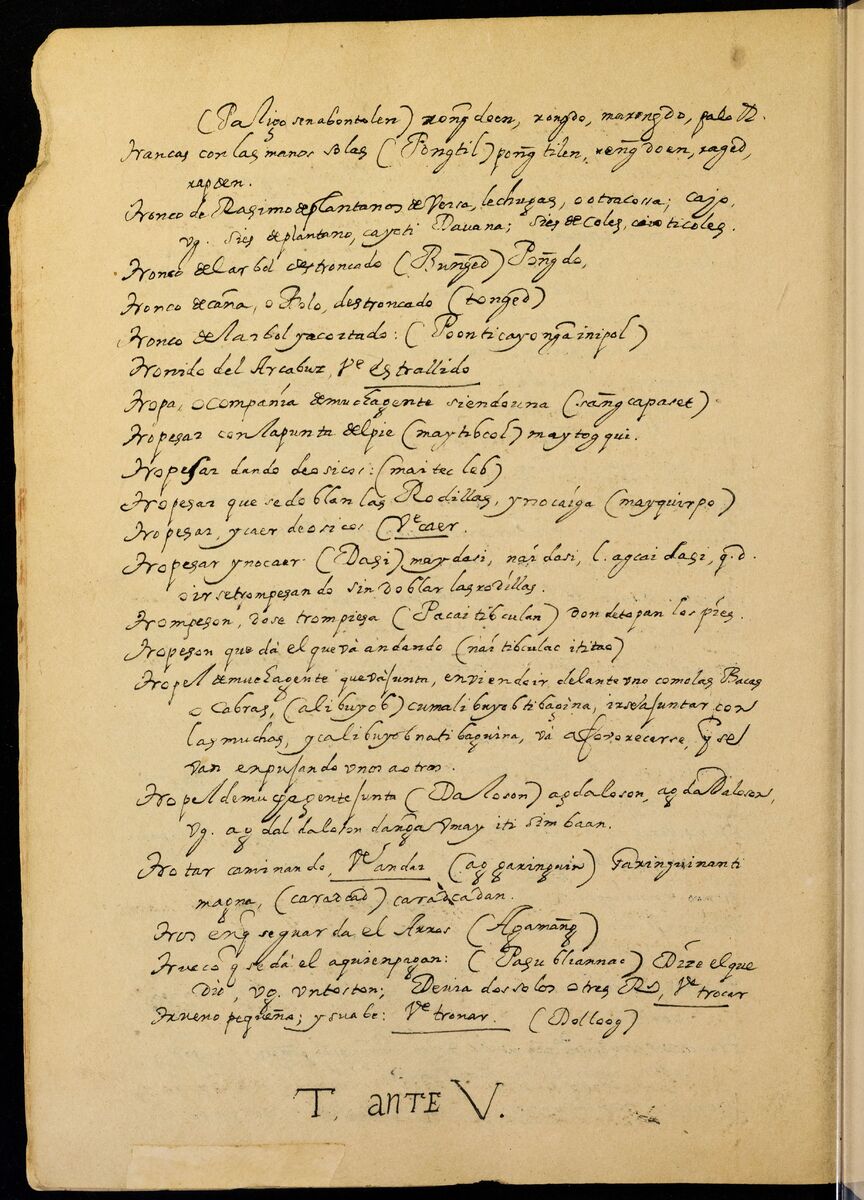 (Pasiço senabontolen) xong̃doen, rongdo, marongdo, palo
Troncas con las manos solas (Pongtil) pong̃tilen, reng̃doen, raged,
rapden.
Tronco de Rasimo de plantanos de Versa, lechugas, o otra cossa; cajo,
vg. sies de plantano, cayoti Davana; sies de coles, caioti coles.
Tronco del arbol destroncado (Bung̃ed) Pong̃do,
Tronco de caña, o Palo, destroncado (tong̃ed)
Tronco del arbol ya cortado: (Poon ti cayo ng̃a inipol)
Tronido del Arcabuz, Ve estrallido
Tropa, o compañía de mucha gente siendo una (sang̃capaset)
Tropesar con la punta del pie (maytibcol) maytog qui.
Tropesar dando de osicos: (mai tec leb)
Tropesar que se doblan las Rodillas, y no caíga (mayquirpo)
Tropesar, y caer de osicos (Ve caer.
Tropesar y no caer (Dasi) maydasi, naidasi, l. agcai dasi, q.d.
o irse trompesando sin doblar las rodíllas.
Trompeson, dose trompiesa (Pacaitibculan) don de topan los píes.
Tropeson que dá el que vá andando (nái tibculac ititao)
Tropel de mucha gente que vá junta, en viendo ir delante uno como las Bacas
o Cabras, (alibuyob) cumalibuyob ti baquina, irse á juntar con
las muchas, ycalibuyobna ti baquina, vá a favorecerse, y se
van enpujando unos a otros.
Tropel de mucha gente junta (Daloson) agdaloson, ag da Daloson,
vg. ag dal daloson dang̃a umay iti simbaan.
Trotar caminando, Ve andar (ag garinguin) Garinguinanti
magna, (caradcad) caradcadan.
Tros enq̃ se guarda el Arros (Agamang̃)
Trueco q̃ se dá el a quien pagan: (Pasubliannac) Dize el que
dio, vg. un toston; Devia dos solos otros Rs, Ve trocar
Trueno pequeño; y suabe: Ve tronar. (Dolloog)
T, ante V.